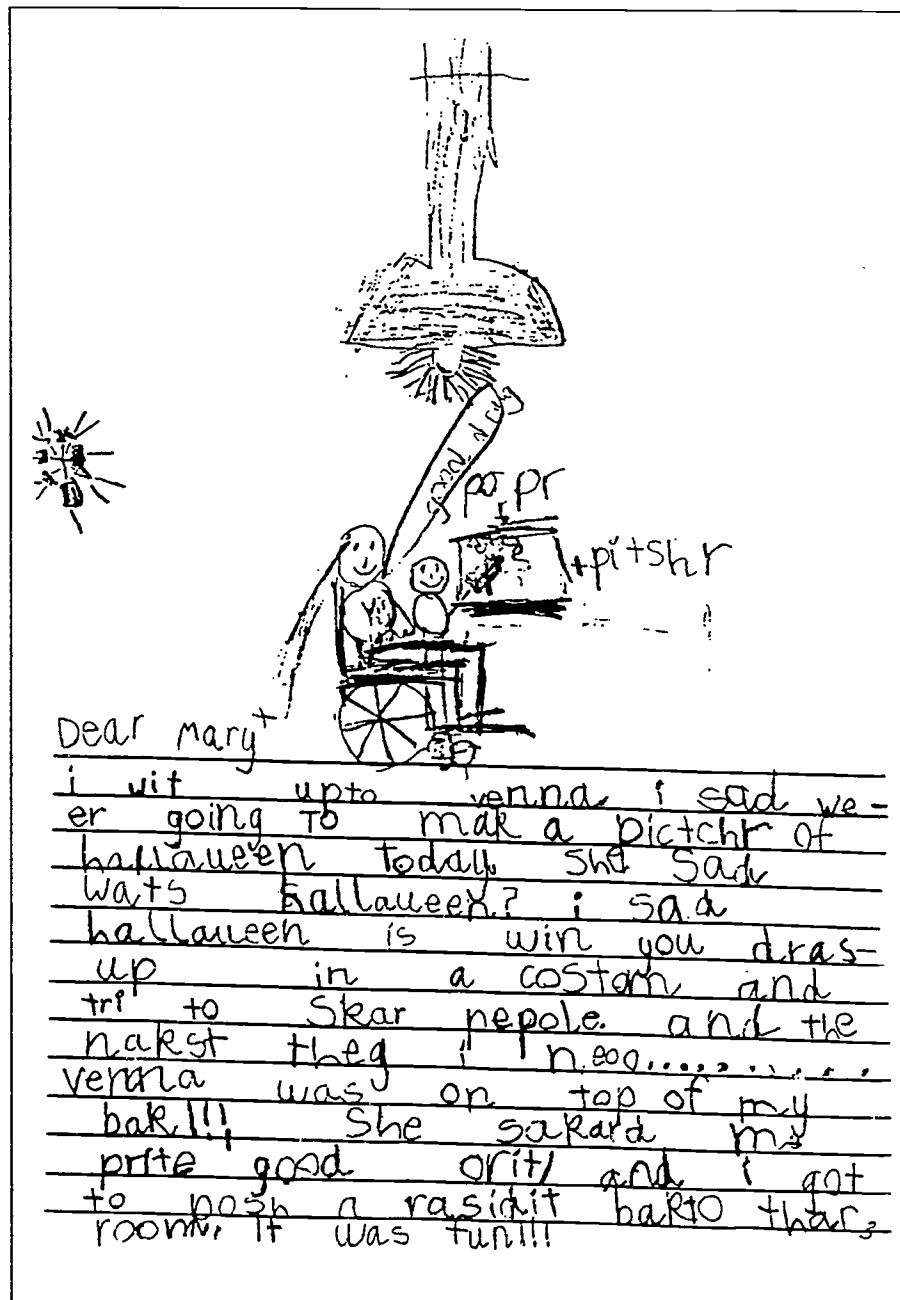 good drig
papr
pitshr
Dear Mary
i wit upto venna i sad we-
er going To mak a pictchr of
hallaueen today she sad
wats hallaueen? i sad
hallaueen is win you dras-
up in a costom and
tri to skar pepole. and the
nakst theg i neoo............
venna was on top of my
bak!!! She sakard me
prite good orit/ and i got
to posh a rasidit bakto thar
room. It was fun!!!